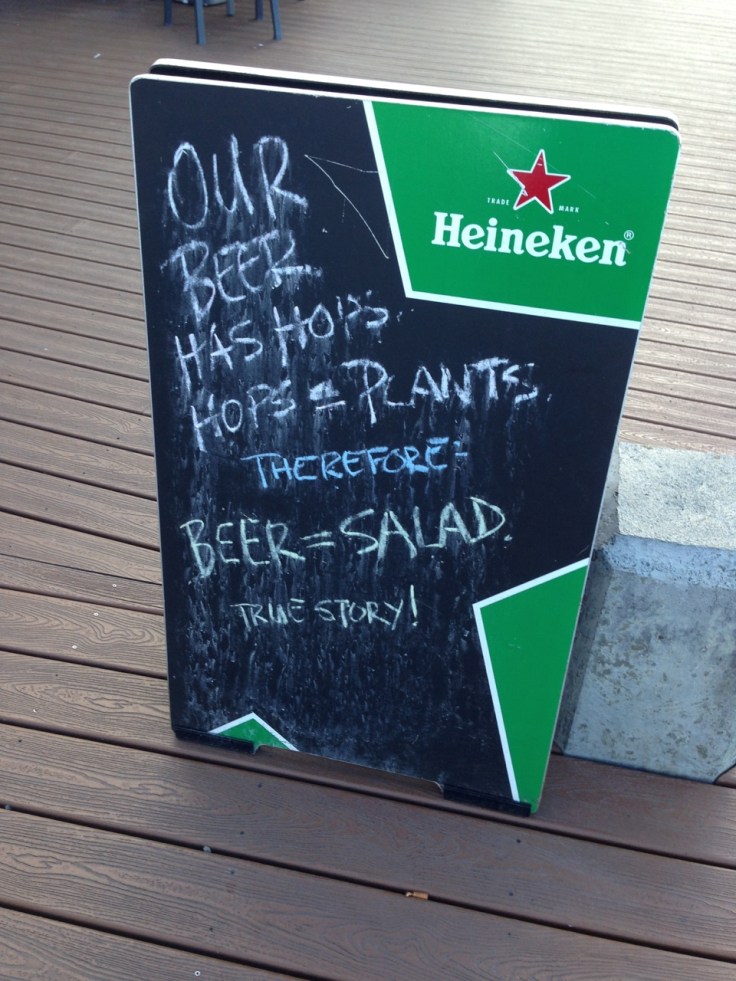 OUR
BEER
HAS HOPS.
HOPS = PLANTS.
THEREFORE:
BEER = SALAD
TRUE STORY!
TRADE MARK
Heineken®